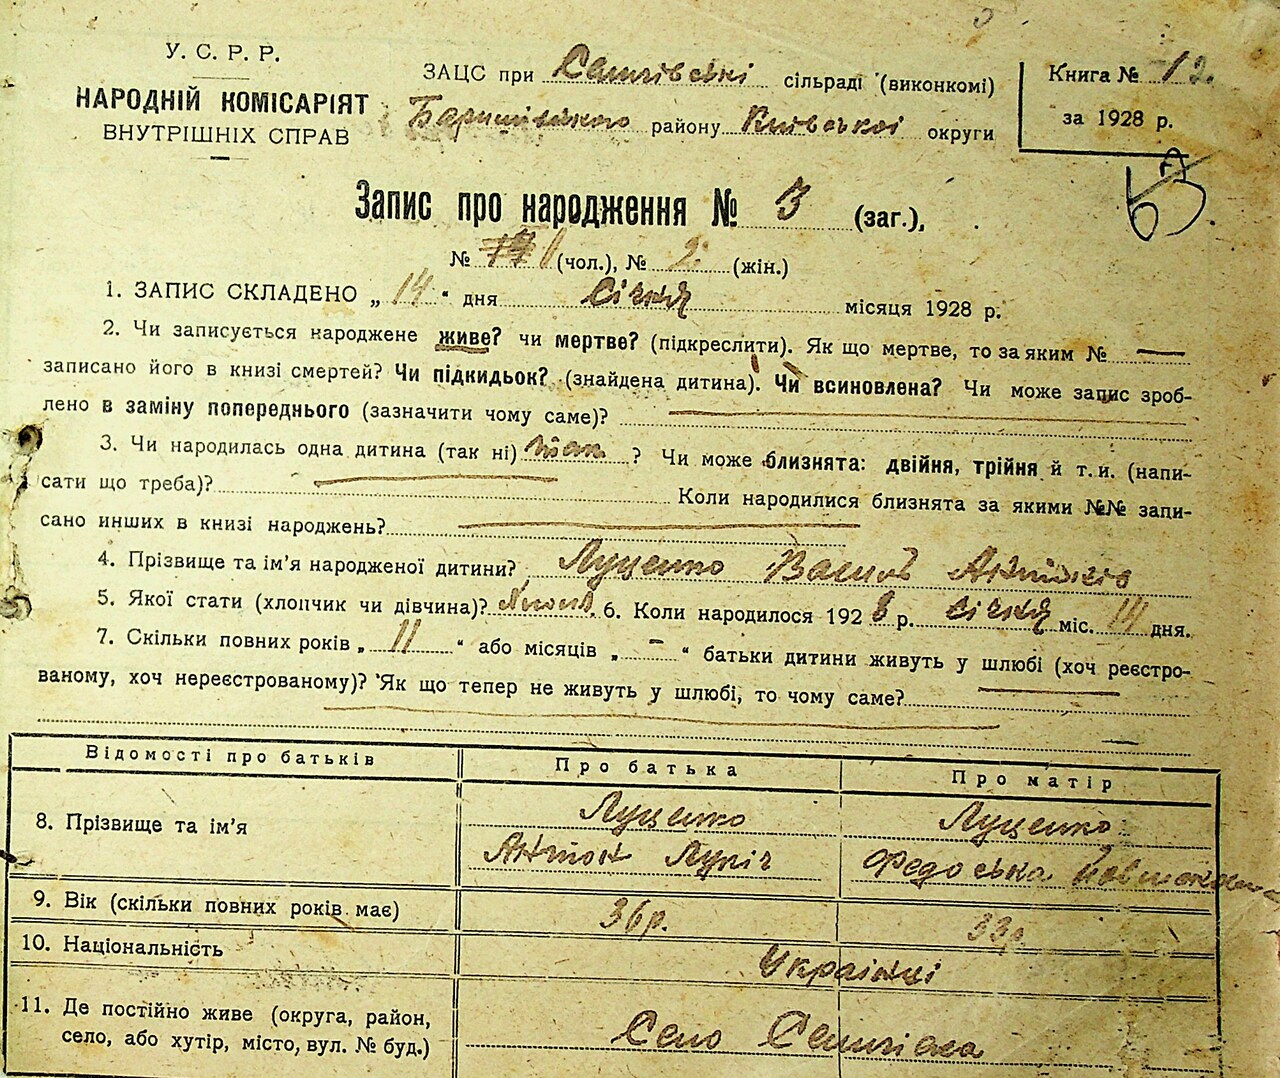 У. С. Р. Р.
НАРОДНІЙ КОМІСАРІЯТ
ВНУТРІШНІХ СПРАВ
ЗАЦС при Селичівські сільраді (виконкомі)
Баришівського району Київської округи
Книга № 12.
за 1928 р.
Запис про народження № 3 (заг.),
№ 1 (чол.), № 2 (жін.)
1. ЗАПИС СКЛАДЕНО „ 14 “ дня Січня місяця 1928 р.
2. Чи записується народжене живе? чи мертве? (підкреслити). Як що мертве, то за яким № —
записано його в книзі смертей? Чи підкидьок? (знайдена дитина). Чи всиновлена? Чи може запис зроб-
лено в заміну попереднього (зазначити чому саме)?
3. Чи народилась одна дитина (так ні) так ? Чи може близнята: двійня, трійня й т. и. (напи-
сати що треба)? Коли народилися близнята за якими №№ запи-
сано инших в книзі народжень?
4. Прізвище та ім'я народженої дитини? Луценко Василь Антонів
5. Якої стати (хлопчик чи дівчина)? 6. Коли народилося 1928 р. Січня міс. 14 дня.
7. Скільки повних років „ 11 “ або місяців „ – “ батьки дитини живуть у шлюбі (хоч реєстро-
ваному, хоч нереєстрованому)? Як що тепер не живуть у шлюбі, то чому саме?
Відомості про батьків Про батька Про матір
8. Прізвище та ім'я Луценко Антон Луліч Луценко Федоська
9. Вік (скільки повних років має) 36р. 33р
10. Національність Українці
11. Де постійно живе (округа, район,
село, або хутір, місто, вул. № буд.) Село Селичівка